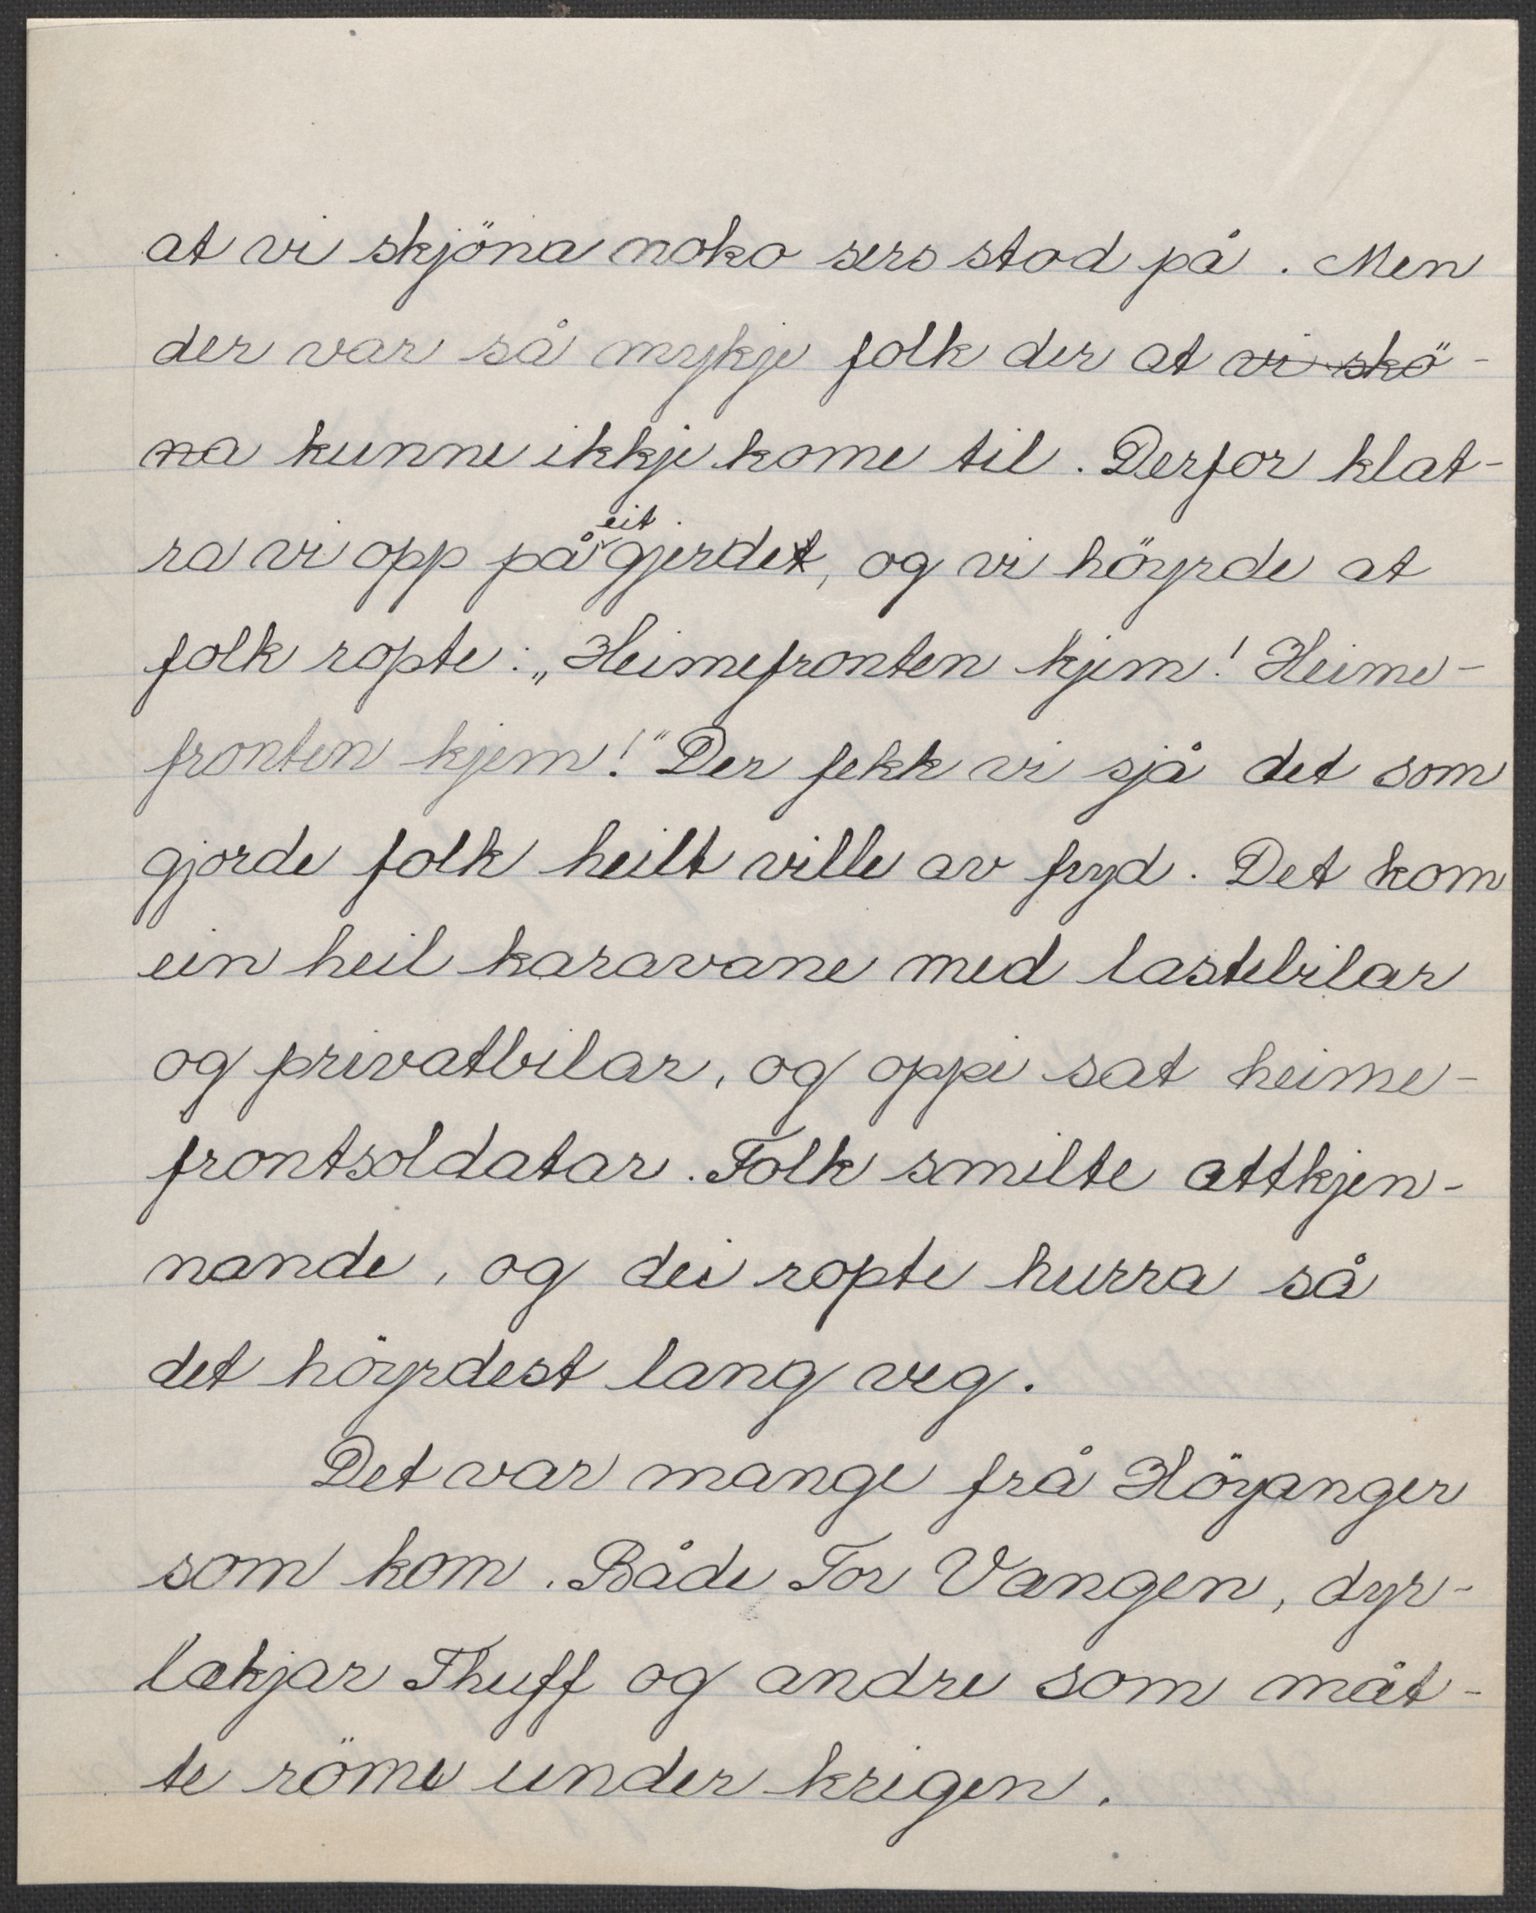 at vi skjöna noko sers stod på. Men
der var så mykje folk der at vi skö-
na kunne ikkje kome til. Derfor klat-
ra vi opp på eit gjerdet, og vi höyrde at
folk ropte: „Heimefronten kjem! Heime-
fronten kjem!" Der fekk vi sjå det som
gjorde folk heilt ville av fryd. Det kom
ein heil karavane med lastebilar
og privatbilar, og oppi sat heime-
frontsoldatar. Folk smilte attkjen-
nande, og dei ropte hurra så
det höyrdest lang veg.
Det var mange frå Höyanger
som kom. Både Tor Vangen, dyr-
lækjar Thuff og andre som måt-
te röme under krigen.